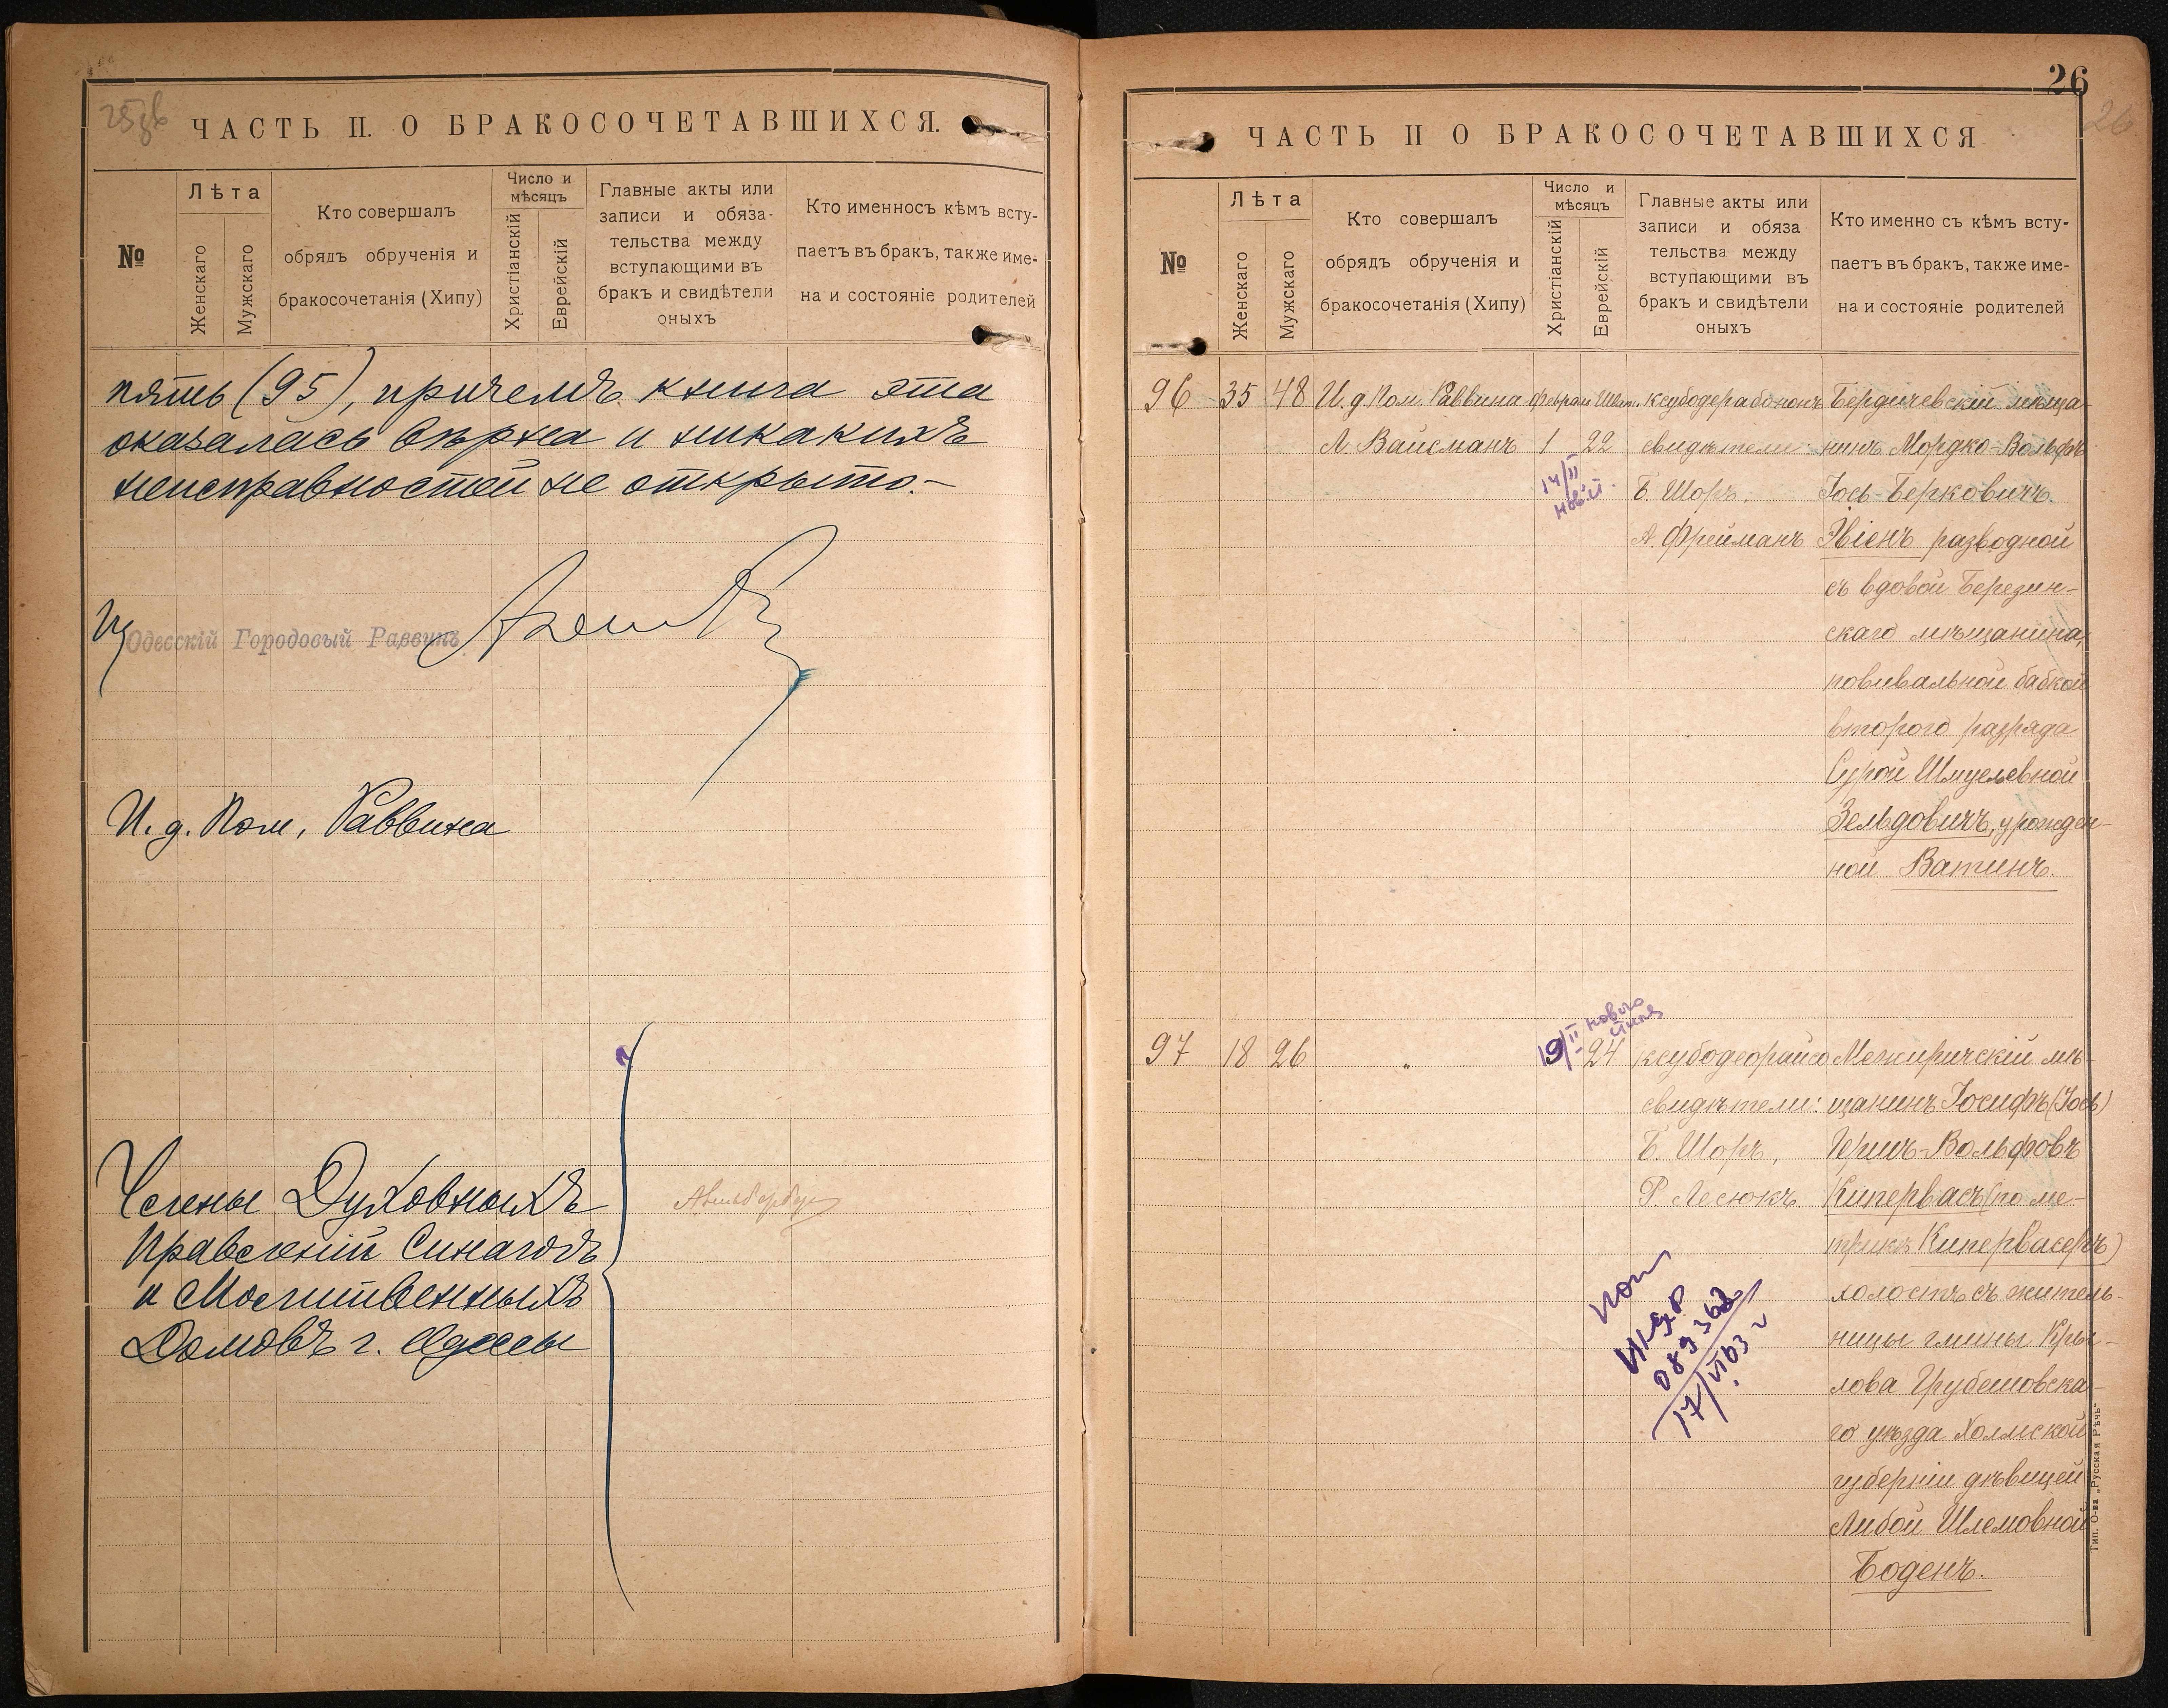 25об
ЧАСТЬ II. О БРАКОСОЧЕТАВШИХСЯ.
№
Лѣта
Женскаго
Мужскаго
Кто совершалъ
обрядъ обрученія и
бракосочетанія (Хипу)
Число и
мѣсяцъ
Христіанскій
Еврейскій
Главные акты или
записи и обяза-
тельства между
вступающими въ
бракъ и свидѣтели
оныхъ
Кто именносъ кѣмъ всту-
паетъ въ бракъ, также име-
на и состояніе родителей
пять (95), причемъ книга эта
оказалась вѣрна и никакихъ
неисправностей не открыто.-
Одесскій Городовый Раввинъ
И. д. Пом. Раввина
Члены Духовныхъ
Правленій Синагогъ
и Молитвенныхъ
Домовъ г. Одессы
26
26
ЧАСТЬ II О БРАКОСОЧЕТАВШИХСЯ
№
Лѣта
Женскаго
Мужскаго
Кто совершалъ
обрядъ обрученія и
бракосочетанія (Хипу)
Число и
мѣсяцъ
Христіанскій
Еврейскій
Главные акты или
записи и обяза
тельства между
вступающими въ
бракъ и свидѣтели
оныхъ
Кто именно съ кѣмъ всту-
паетъ въ бракъ, также име-
на и состояніе родителей
96 35 48 И. д. Пом. Раввина Феврал Шват. ксубодерабонон Бердичевскій мѣща-
Л. Вайсманъ 1 22 свидѣтели: нинъ Мордко-Вольфъ
14/II новый Б. Шоръ, Іось-Берковичъ
А. Фрейманъ Явіенъ разводной
съ вдовой Березин-
скаго мѣщанина,
повивальной бабкой
второго разряда
Сурой Шмулевной
Зельдовичъ, урожден-
ной Ватинъ.
19/II нового стиля
97 18 26 „ 24 ксубодеорайсо Межиричскій мѣ-
свидѣтели: щанинъ Іосифъ (Іось)
Б. Шоръ, Герш-Вольфовъ
Р. Лесюкъ. Кипервасъ (по ме-
трикѣ Кипервасеръ)
холостъ съ житель-
ницы гмины Кры-
лова Грубешовска-
го уѣзда Холмской
губерніи дѣвицей
Либой Шлемовной
Боденъ.
089362
17/VI 63 г
Тип. О-ва „Русская Рѣчь“